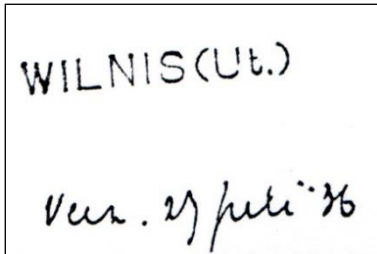 WILNIS (Ut.)
Verz. 27 juli '36